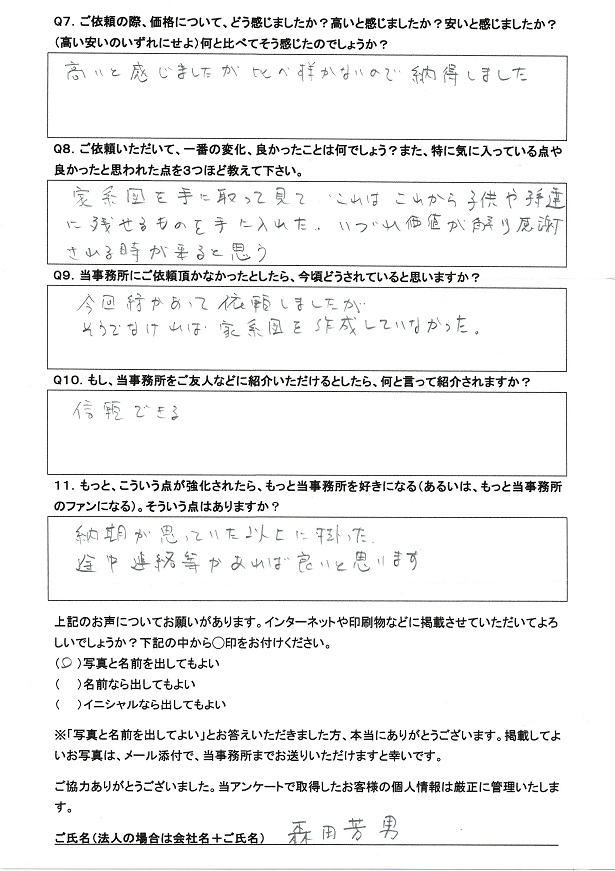 Q7. ご依頼の際、価格について、どう感じましたか?高いと感じましたか?安いと感じましたか?
(高い安いのいずれにせよ)何と比べてそう感じたのでしょうか?
高いと感じましたが比べ様がないので納得しました
Q8. ご依頼いただいて、一番の変化、良かったことは何でしょう?また、特に気に入っている点や
良かったと思われた点を3つほど教えて下さい。
家系図を手に取って見て、これはこれから子供や孫達
に残せるものを手に入れた。いづれ価値が解り感謝
される時が来ると思う
Q9. 当事務所にご依頼頂かなかったとしたら、今頃どうされていると思いますか?
今回縁があって依頼しましたが
そうでなければ家系図を作成していなかった。
Q10. もし、当事務所をご友人などに紹介いただけるとしたら、何と言って紹介されますか?
信頼できる
11. もっと、こういう点が強化されたら、もっと当事務所を好きになる(あるいは、もっと当事務所
のファンになる)。そういう点はありますか?
納期が思っていた以上に掛った。
途中連絡等があれば良いと思います
上記のお声についてお願いがあります。インターネットや印刷物などに掲載させていただいてよろ
しいでしょうか?下記の中から○印をお付けください。
(○)写真と名前を出してもよい
( )名前なら出してもよい
( )イニシャルなら出してもよい
※「写真と名前を出してよい」とお答えいただきました方、本当にありがとうございます。掲載してよ
いお写真は、メール添付で、当事務所までお送りいただけますと幸いです。
ご協力ありがとうございました。当アンケートで取得したお客様の個人情報は厳正に管理いたしま
す。
ご氏名(法人の場合は会社名+ご氏名) 森田芳男